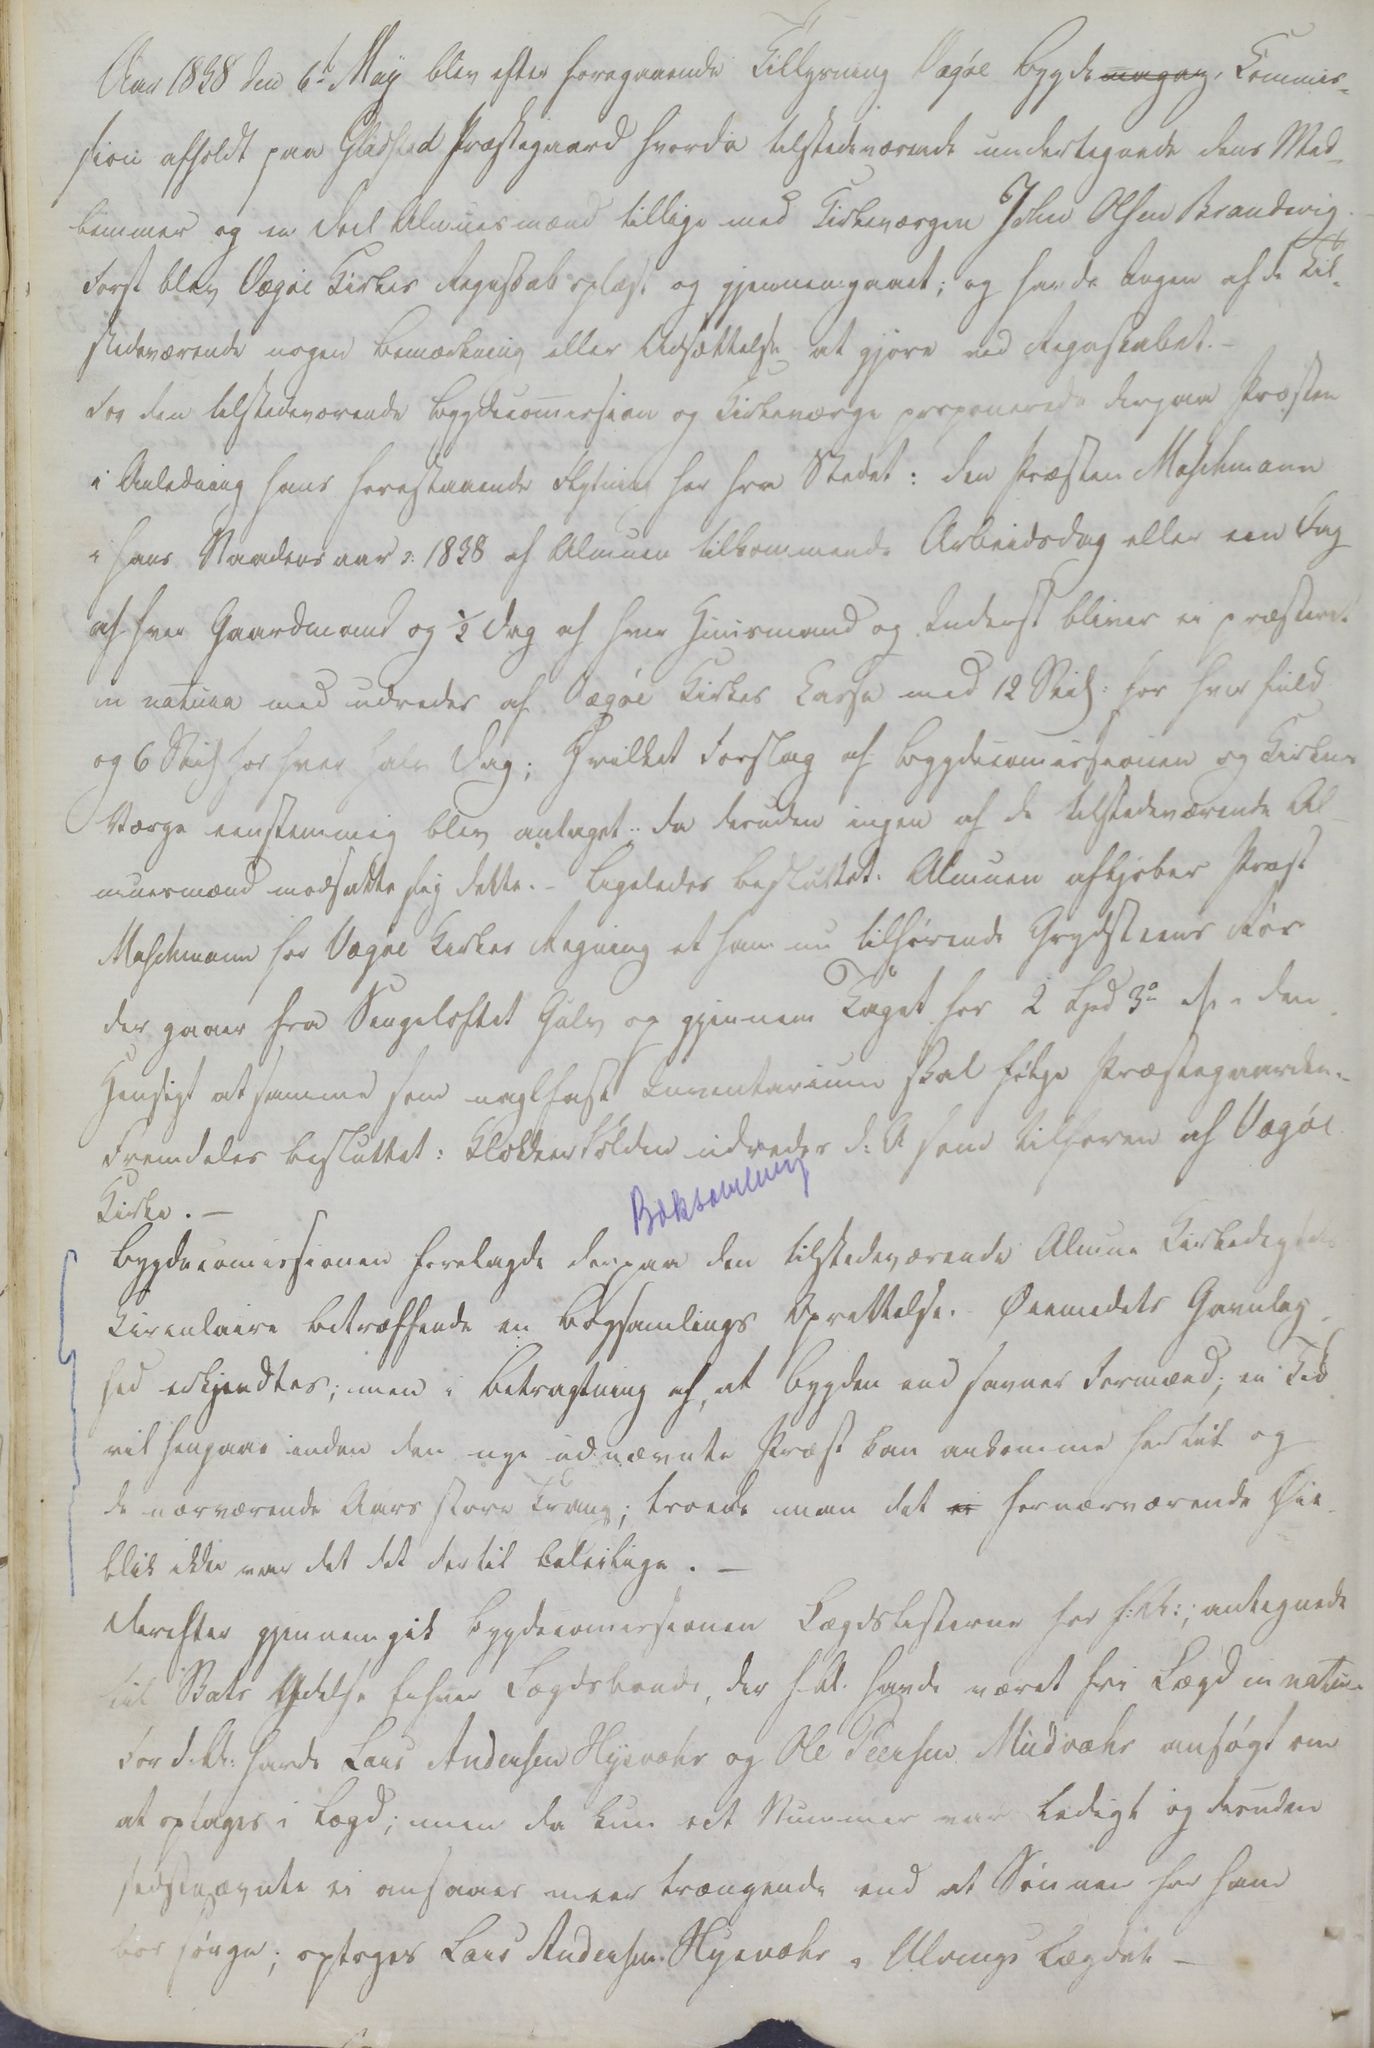 Aar 1838 den 6te May blev efter foregaaende Tillysning Vegøe Bygdemagaz. Commis-
sion afholdt paa Gladstad Præstegaard hvorda tilstedeværende undertegnede dens Med-
lemmer og en Deel Almuesmænd tillige med Kirkeværgen John Olsen Brandvig.
Først blev Vegøe Kirkes Regnskab oplæst og gjennemgaaet; og havde Ingen af de Til-
stedeværende nogen Bemærkning eller Udsættelse at gjøre ved Regnskabet. -
For den tilstedeværende Bygdecommission og Kirkeværge proponerede derpaa Præsten
i Anledning hans forestaaende Flytning her fra Stedet: den Præsten Maschmann
i hans Naadensaar 1838 af Almuen tilkommende Arbeidsdag eller een Dag
af hver Gaardmand og ½ Dag af hver Huusmand og Inderst bliver ei præsteret
in natura med udredes af Vegøe Kirkes Casse med 12 Skill: for hver fuld
og 6 Skill for hver halv Dag; Hvilket Forslag af Bygdecommissionen og Kirke-
Værge eenstemmig blev antaget: da desuden ingen af de tilstedeværende Al-
muesmænd modsatte sig dette. - Ligeledes besluttet: Almuen afkjøber Præst
Maschmann for Vegøe Kirkes Regning et ham nu tilhørende Grydsteens Rør
der gaaer fra Sengeloftet Gulv og gjennem Taget for 2 Spd 3 i den
Hensigt at samme som naglfast Inventarium skal følge Præstegaarden. -
Fremdeles besluttet: Klokkertolden udredes d: A som tilforen af Vegøe
Kirke. -
Boksamling
Bygdecommissionen forelagde derpaa den tilstedeværende Almue Kirkedeptets
Circulaire betræffende en Bogsamlings Oprettelse. Øiemedets Gavnlig-
hed erkjendtes; men i Betragtning af, at Bygden end savner Formænd; en Tid
vil hengaae inden den nye udnævnte Præst kan ankomme hertil og
de nærværende Aars store Trang; troede man det ei for nærværende Øie-
blik ikke var det det dertil beleilige. -
Derefter gjennemgik Bygdecommissionen Lægdslisterne for f: A:; antegnede
til Skats Ydelse Enhver Lægdsbonde, der f. A. havde været fri Lægd in natura
For d. A: havde Lars Andersen Hysvær og Ole Peersen Mudvær ansøgt om
at optages i Lægd; men da kun eet Nummer var ledigt og desuden
sidstnævnte ei ansaaes meer trængende end at Sønnen for ham
bør sørge; optoges Lars Andersen Hysvær i Ulvings Lægdet -